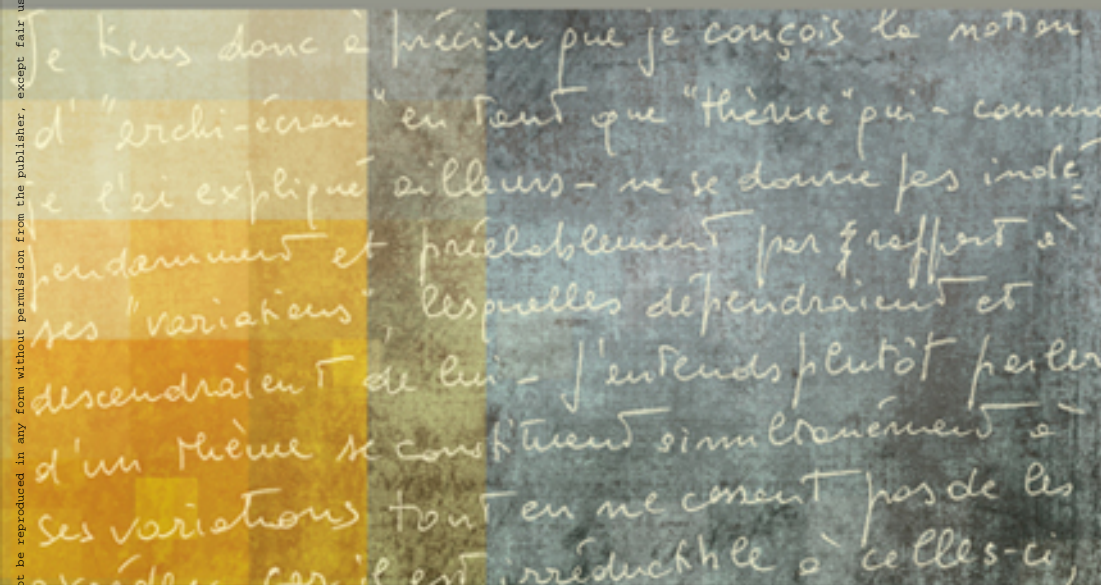 Je tiens donc à préciser que je conçois la notion
d' "archi-écran" en tant que "thème" qui - comme
je l'ai expliqué ailleurs - ne se donne pas indé
pendamment et préalablement par rapport à
ses "variations" lesquelles dépendraient et
descendraient de lui - j'entends plutôt parler
d'un thème se constituant simultanément à
ses variations tout en ne cessant pas de les
excéder car il est irréductible à celles-ci,
ot be reproduced in any form without permission from the publisher, except fair us